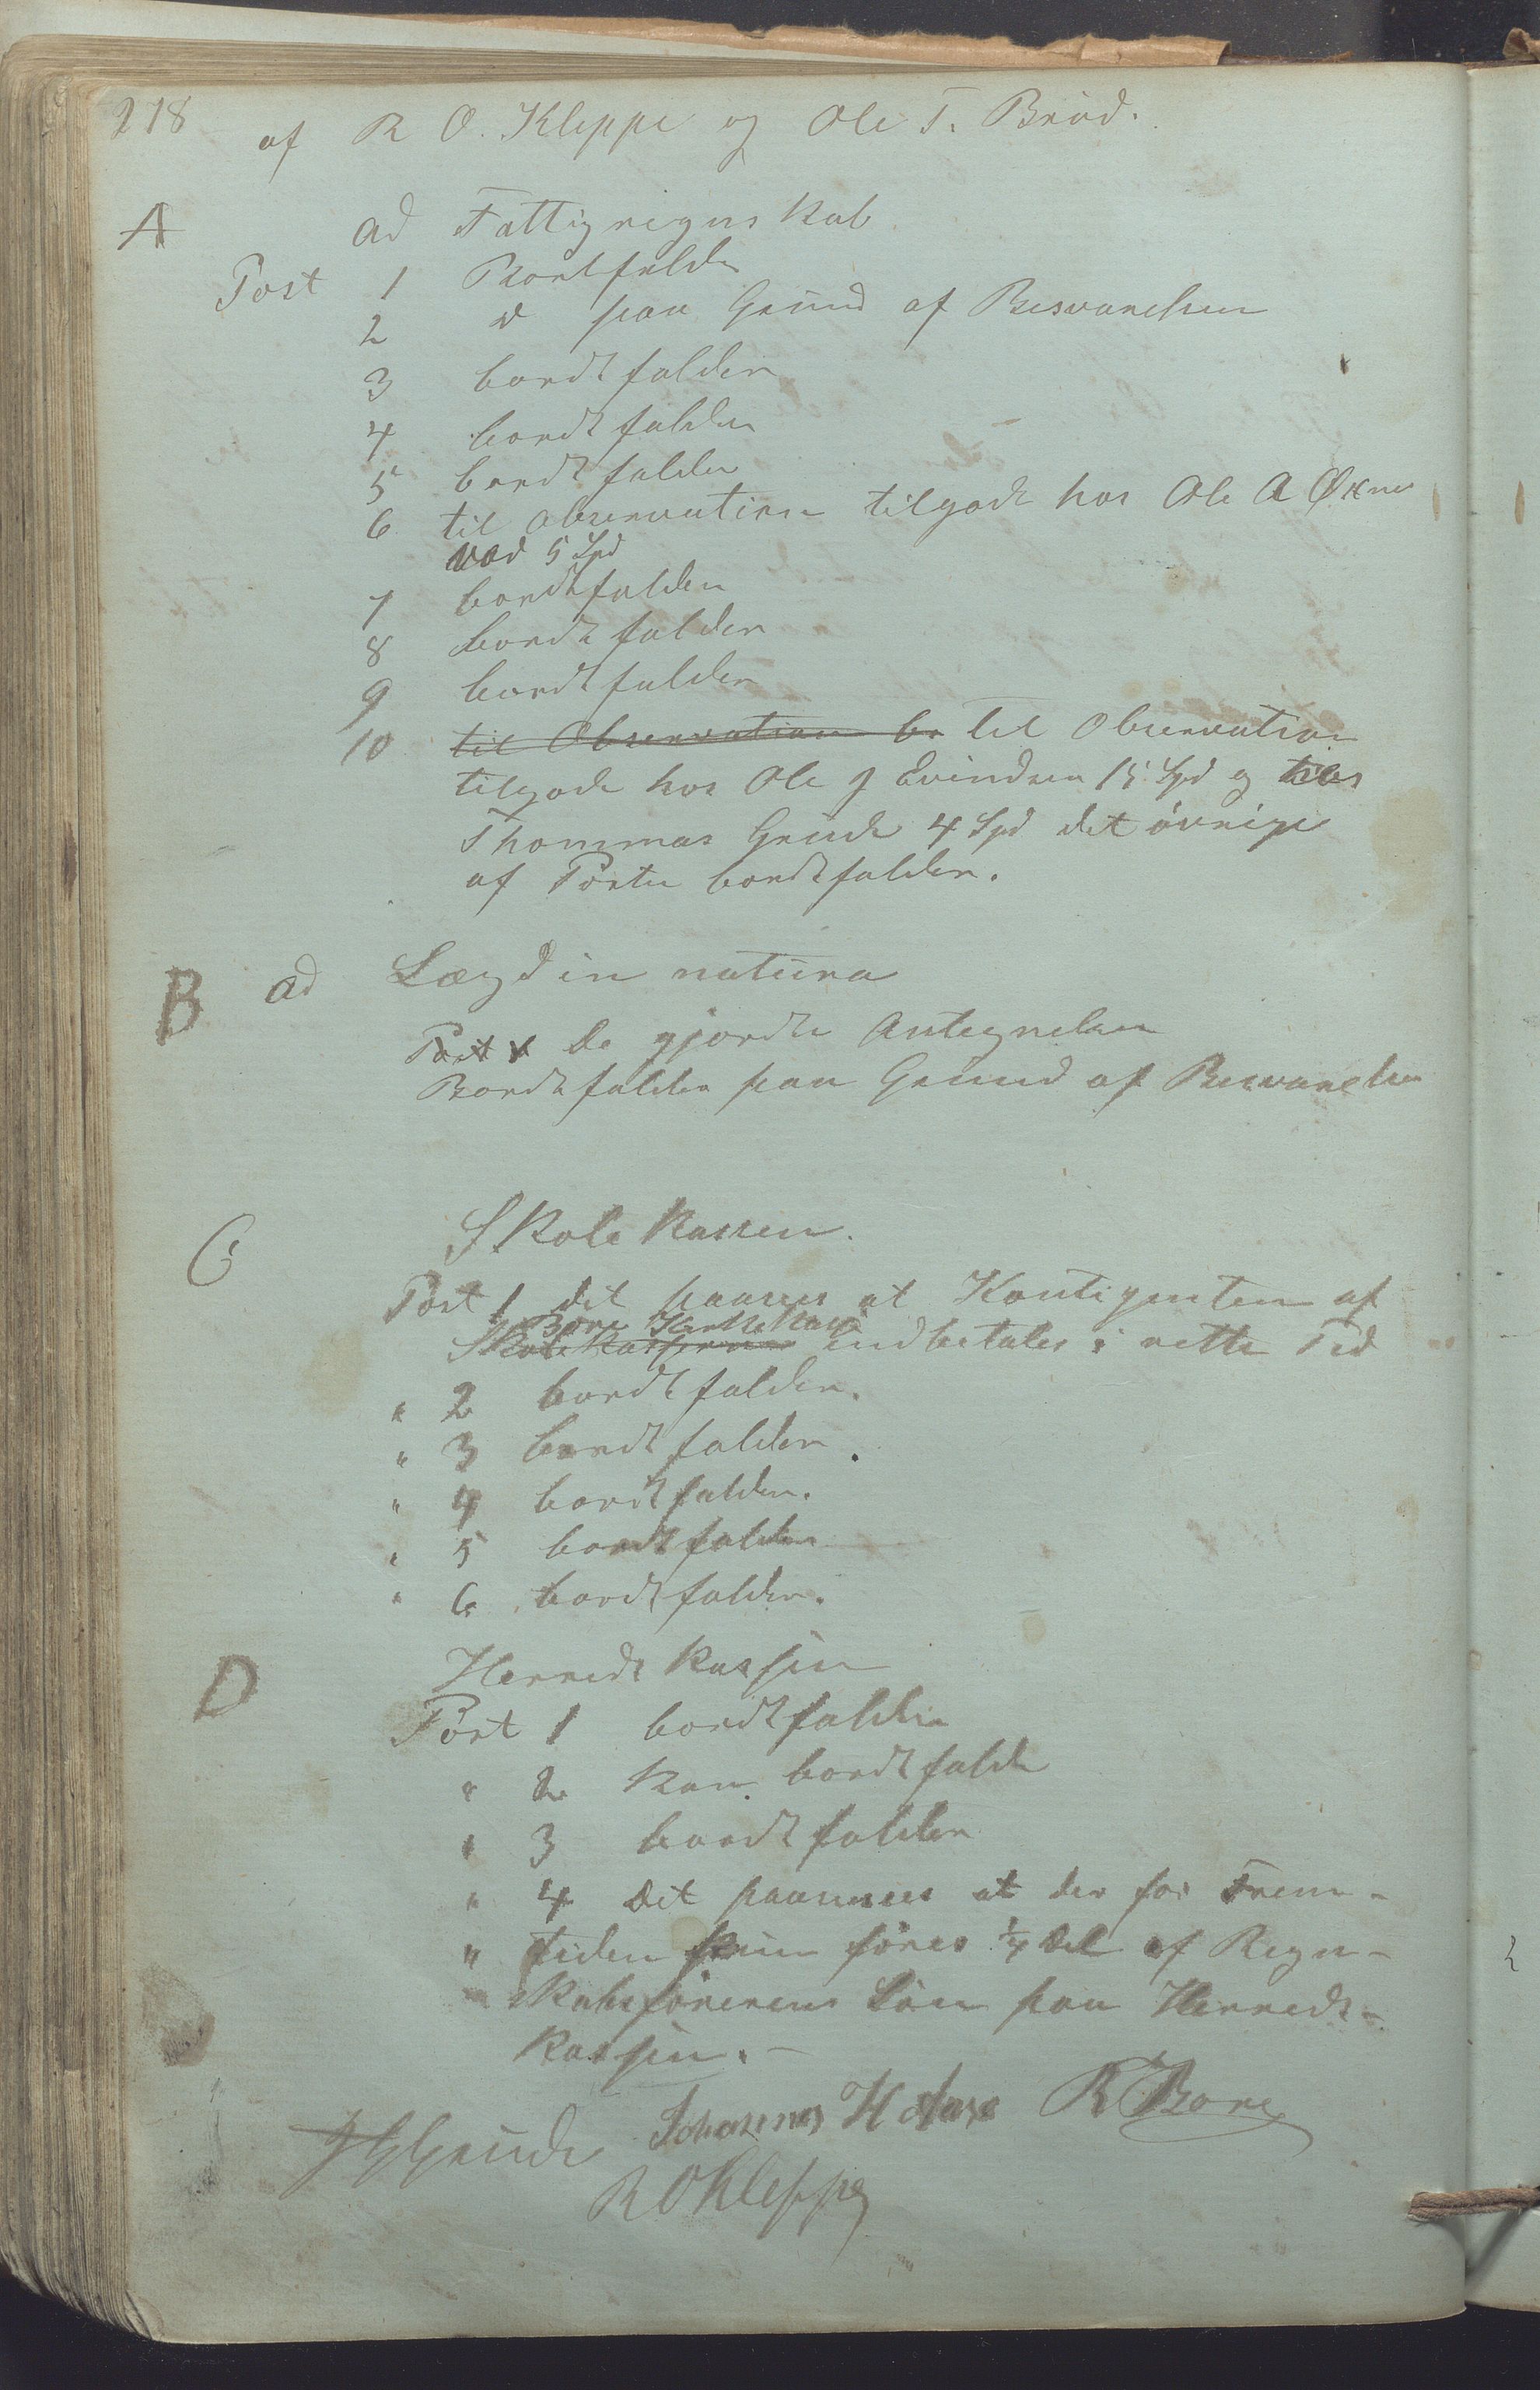 278
af R O. Kleppe og Ole T. Bröd.
A ad Fattigregnskab
Post 1 Bortfalder
2 d paa Grund af Besvarelsen
3 bordtfalder
4 bordtfalder
5 bordtfalder
6 til Observation tilgode hos Ole A Øxnev
vad 5 Spd
7 bordtfalder
8 bordtfalder
9 bordtfalder
10 til Observation bo til Observation
tilgode hos Ole J Evindsen 15 Spd og hos
Thommas Grude 4 Spd det övrige
af Posten bordtfalder.
B ad Lægd in natura
Post de gjordte Antegnelser
Bordtfalder paa Grund af Besvarelsen
C Skolekassen.
Post 1 det paasees at Kontigenten af
Bore Kirkekasse
Skolekassen indbetales i rette Tid
" 2 bordtfalder.
" 3 bordtfalder.
" 4 bordtfalder.
" 5 bordtfalder
" 6 bordtfalder.
D Herredskassen
Post 1 bordtfalder
" 2 Kan bordtfalde
" 3 bordtfalder
" 4 Det paasees at der for Frem-
" tiden kun föres 1/4 Del af Regn-
" skabsförerens Lön paa Herreds-
kassen. -
Grude Johannes H Aase R Bore
R O Kleppe